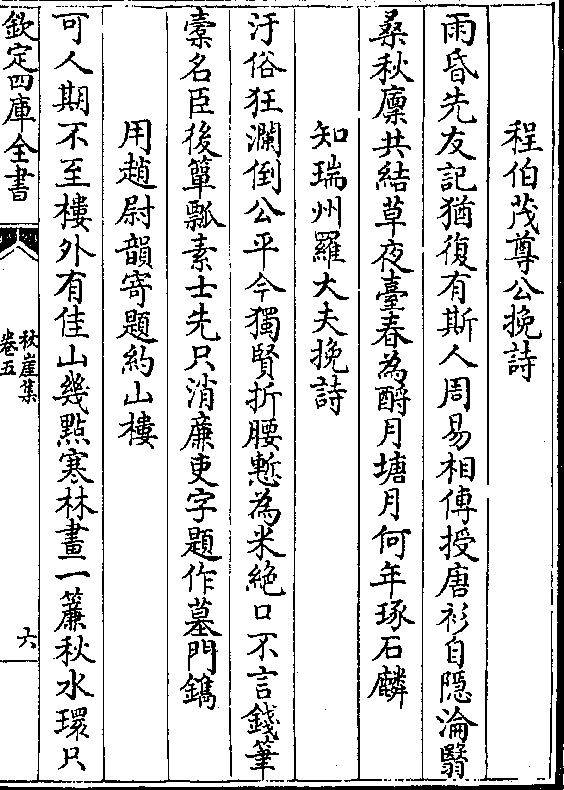 程伯茂尊公挽詩
雨昏先友記猶復有斯人周易相傳授唐衫自隱淪翳
桑秋廩共結草夜臺春為酹月塘月何年琢石麟
知瑞州羅大夫挽詩
汙俗狂瀾倒公平今獨賢折腰慙為米絶口不言錢筆
槖名臣後簞瓢素士先只消廉吏字題作墓門鐫
用趙尉韻寄題約山樓
可人期不至樓外有佳山幾點寒林畫一簾秋水環只
欽定四庫全書
秋崖集
卷五
六